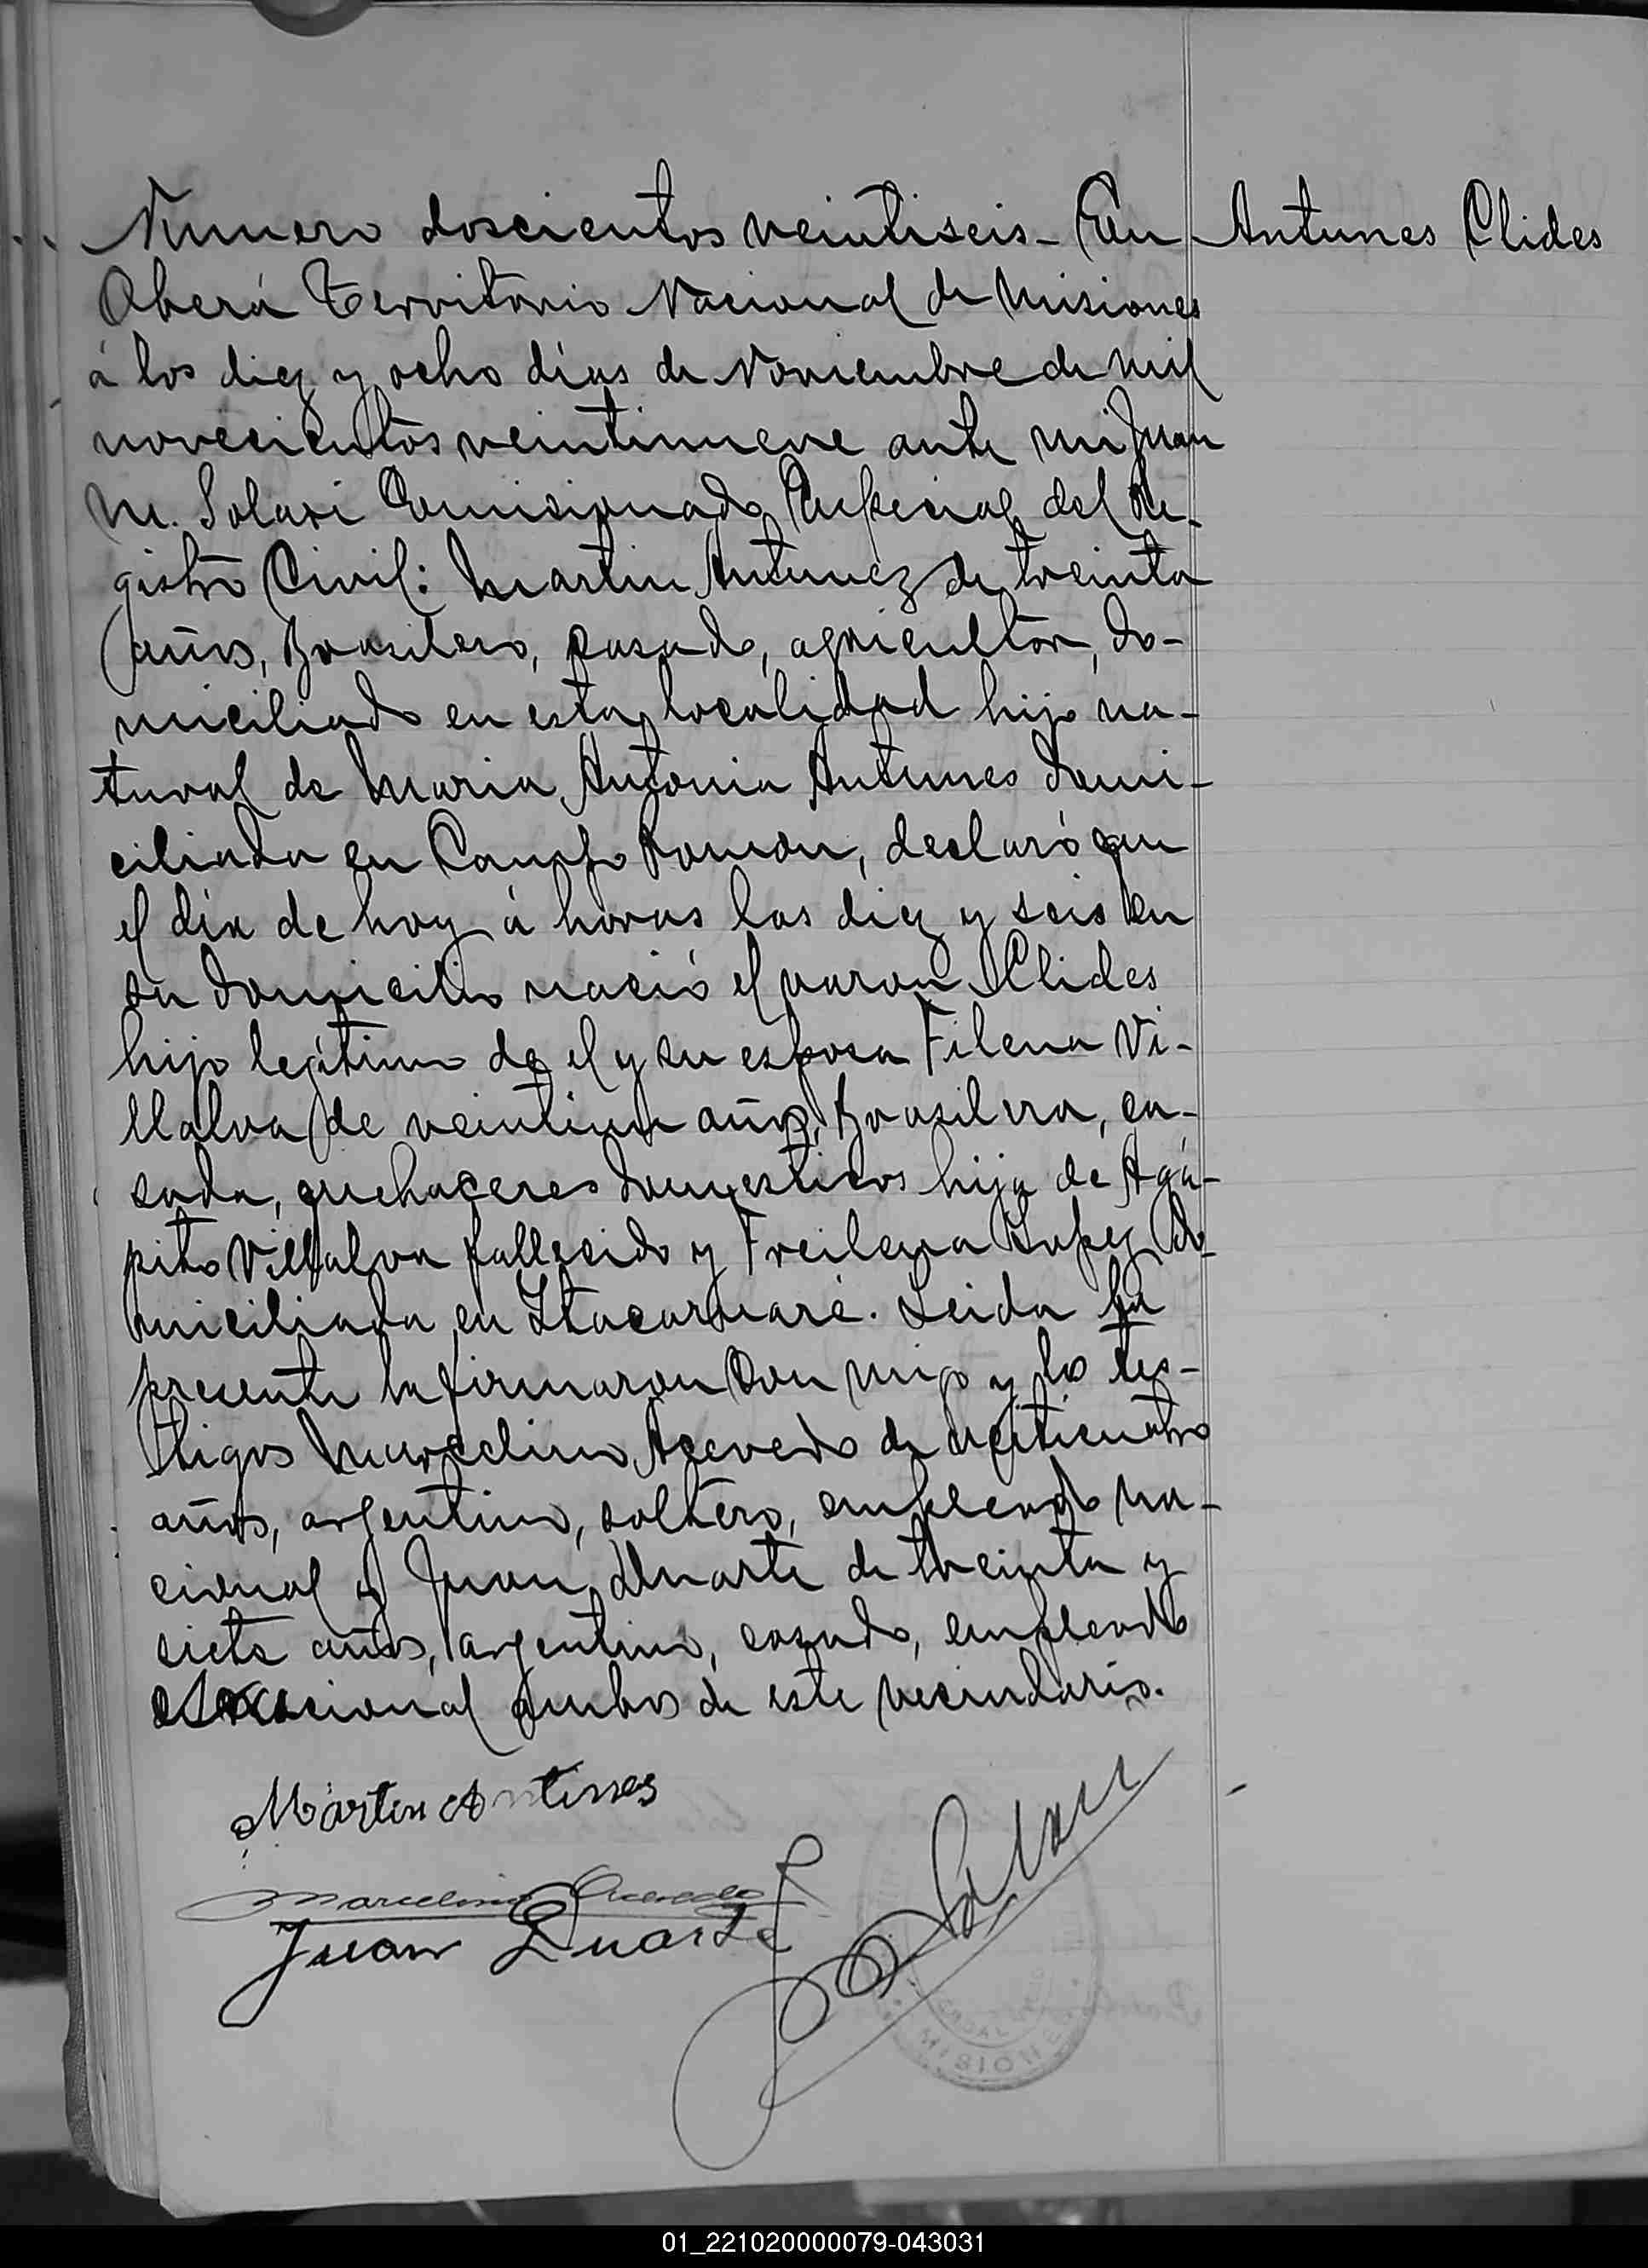 Numero doscientos veintiseis - En
Antunes Clides
Oberá Territorio Nacional de Misiones
á los diez y ocho días de Noviembre de mil
novecientos veintinueve ante mi Juan
M. Solari Comisionado Especial del Re-
gistro Civil: Martin Antunez de treinta
años, Brasilero, casado, agricultor, do-
miciliado en esta localidad hijo na-
tural de Maria Antonia Antunes domi-
ciliada en Campo Ramon, declaró que
el día de hoy á horas las diez y seis en
su domicilio nació el varon Clides
hijo legitimo de el y su esposa Filena Vi-
llalva de veintiun años, Brasilera, ca-
sada, quehaceres domesticos hija de Aga-
pito Villalva fallecido y Lopez do-
miciliada en Itacaruaré. Leida la
presente la firmaron con migo y los tes-
tigos Marcelino Acevedo de veinticuatro
años, argentino, soltero, empleado na-
cional y Juan Duarte de treinta y
siete años, argentino, casado, empleado
nacional ambos de este vecindario.
Martin Antunes
Marcelino Acevedo
Juan Duarte
Solari
MISIONES
01_221020000079-043031